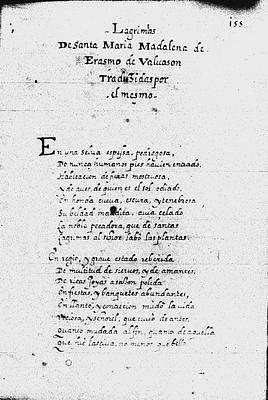 155
Lagrimas
De Santa Maria Madalena de
Erasmo de Valuason
Traduzidas por
el mesmo
En una selua espessa, pedregosa,
Do nunca humanos pies hauien entrado,
Habitacion de fieras
y de auer, de quien es el sol odiado,
En honda cueua, escura, y tenebrosa
Su beldad auia celado
La noble pecadora, que de santas
Lagrimas al señor labó las plantas.
En regio, y graue estado
De multitud de sieruos, y de amantes,
De ricas joyas
En fiestas, y banquetes abundantes,
En llanto, y mudó la vida
y señoril, que de antes,
quanto mudada al fin, quanto de aquella
Que fué lasciua, no menos que bella